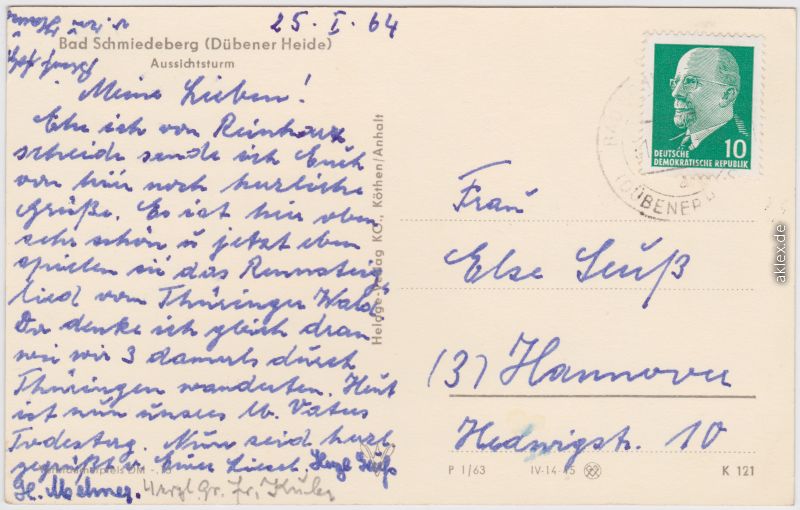 25. I. 64
Bad Schmiedeberg (Dübener Heide)
Aussichtsturm
Meine Lieben!
Ehe ich von Reinharz
scheide sende ich Euch
von hier noch herzliche
Grüße. Es ist hier oben
sehr schön u jetzt eben
spielen sie das Rennsteig
lied vom Thüringer Wald
Da denke ich gleich dran
wie wir 3 damals durch
Thüringen wanderten. Heut
ist nun unseres lb. Vaters
Todestag. Nun seid herzl.
gegrüßt v. Eurer Liesel. Herzl Grüße
H. Mehner. Herzl Gr. Fr.
Verlag KG., Köthen/Anhalt
DEUTSCHE
DEMOKRATISCHE REPUBLIK
10
BAD
(DÜBENER
Frau
Else Seuß
(3) Hannover
Hedwigstr. 10
P 1/63 IV-14-45 K 121
aklex.de